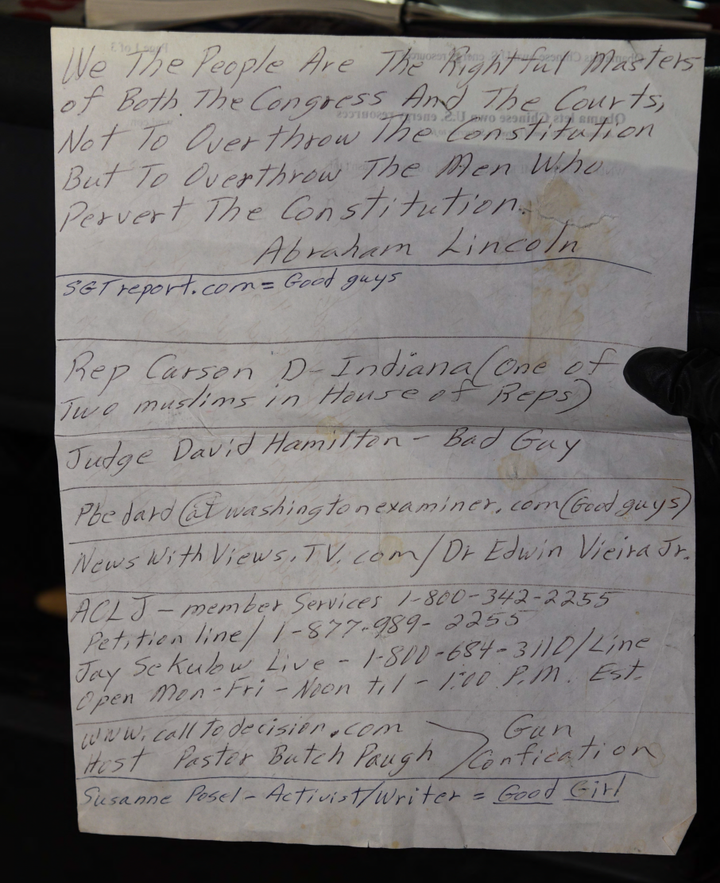 We The People Are The Rightful Masters
of Both The Congress And The Courts,
Not To Overthrow The Constitution
But To Overthrow The Men Who
Pervert The Constitution.
Abraham Lincoln
SGTreport.com = Good guys
Rep Carson D-Indiana (One of
Two muslims in House of Reps)
Judge David Hamilton - Bad Guy
Pbedard @at washingtonexaminer.com (Good guys)
News With Views.TV.com/Dr Edwin Vieira Jr.
ACLJ - member Services 1-800-342-2255
Petition line/ 1-877-989-2255
Jay Sekulow Live - 1-800-684-3110/Line
Open Mon-Fri - Noon til - 1:00 P.M. Est.
www.calltodecision.com
Host Pastor Butch Paugh
Gun
Confication
Susanne Posel - Activist/Writer = Good Girl
Page 1 of 3
Obama lets Chinese own U.S. energy resources